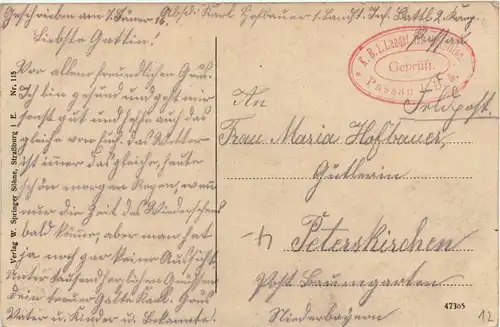 Geschrieben am 7. Jäner 16. Absd: Karl Hofbauer 1. Landst. Inf. Battl. 2. Komp.
Passau
Liebste Gattin!
Vor allem freundlichen Gruß.
Ich bin gesund und geht mir
recht gut und hoffe auch das
gleiche von Euch. Das Wetter
ist immer das gleiche, heute
schön morgen Regen, wenn
nur die Zeit des Wiedersehens
bald käme, aber man hat
ja noch gar keine Aussicht.
Unter tausend herzlichen Grüßen
dein treuer Gatte Karl. Gruß
Vater u. Kinder u. Bekannte.
K. B. 1. Landst.
Geprüft.
Passau
Feldpost.
An
Frau Maria Hofbauer,
Gütlerin
Peterskirchen
Post Baumgarten
Niederbayern
Verlag W. Springer Söhne, Straßburg i. E. Nr. 115
47365
12